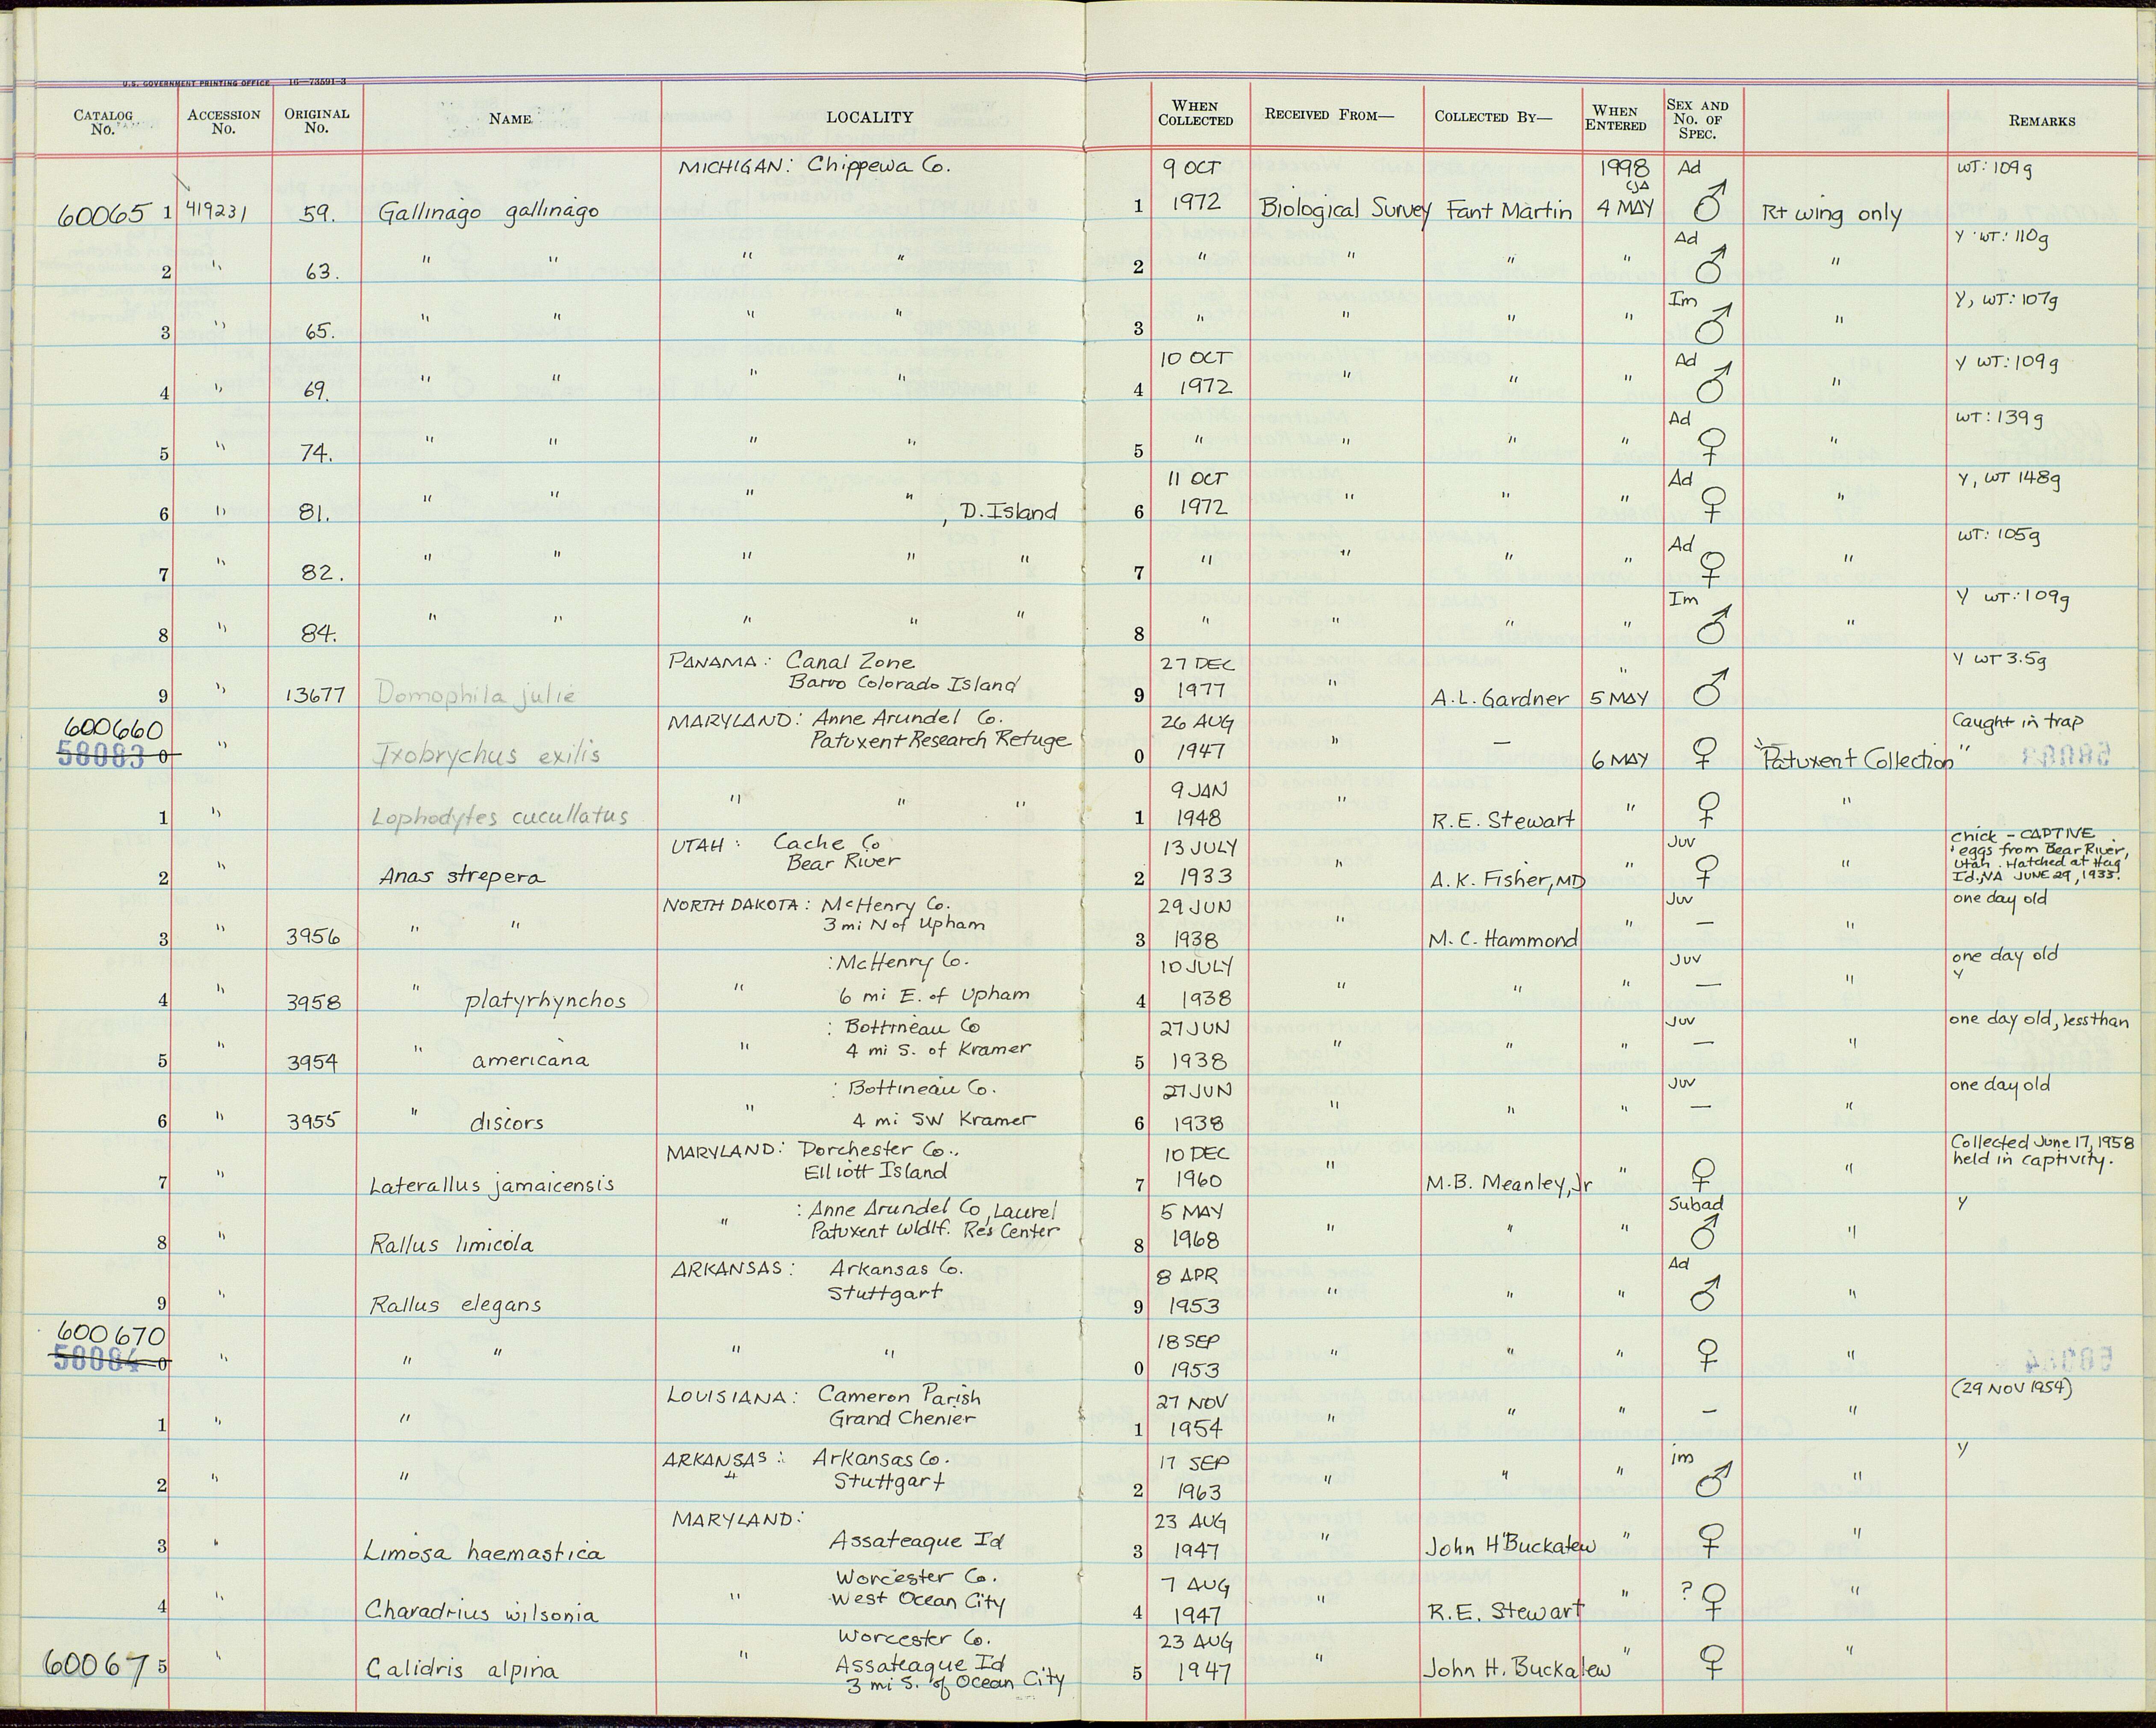 U.S. GOVERNMENT PRINTING OFFICE 16—73591-3
CATALOG No. ACCESSION No. ORIGINAL No. NAME LOCALITY WHEN COLLECTED RECEIVED FROM— COLLECTED BY— WHEN ENTERED SEX AND No. OF SPEC. REMARKS
MICHIGAN: Chippewa Co. 9 OCT 1998 Ad WT: 109g
CJA
60065 1 419231 59. Gallinago gallinago 1 1972 Biological Survey Fant Martin 4 MAY ♂ Rt wing only
Ad Y WT: 110g
2 " 63. " " " " 2 " " " " ♂ "
Im Y, WT: 107g
3 " 65. " " " " 3 " " " " ♂ "
10 OCT Ad Y WT: 109g
4 " 69. " " " " 4 1972 " " " ♂ "
Ad WT: 139g
5 " 74. " " " " 5 " " " " ♀ "
11 OCT Ad Y, WT 148g
6 " 81. " " " " , D. Island 6 1972 " " " ♀ "
Ad WT: 105g
7 " 82. " " " " " 7 " " " " ♀ "
Im Y WT: 109g
8 " 84. " " " " " 8 " " " " ♂ "
PANAMA: Canal Zone 27 DEC " Y WT 3.5g
9 " 13677 Damophila julie Barro Colorado Island 9 1977 " A.L. Gardner 5 MAY ♂
600660 MARYLAND: Anne Arundel Co. 26 AUG Caught in trap
58083 0 " Ixobrychus exilis Patuxent Research Refuge 0 1947 " — 6 MAY ♀ "Patuxent Collection"
9 JAN
1 " Lophodytes cucullatus " " " 1 1948 " R.E. Stewart " ♀ "
UTAH: Cache Co 13 JULY Juv Chick – CAPTIVE
Bear River eggs from Bear River,
Utah. Hatched at Hag
2 " Anas strepera 2 1933 " A.K. Fisher, MD " ♀ " Id., VA JUNE 29, 1933.
NORTH DAKOTA: McHenry Co. 29 JUN Juv one day old
3 " 3956 " " 3 mi N of Upham 3 1938 " M.C. Hammond " — "
: McHenry Co. 10 JULY Juv one day old
Y
4 " 3958 " platyrhynchos " 6 mi E. of Upham 4 1938 " " " — "
: Bottineau Co 27 JUN Juv one day old, less than
5 " 3954 " americana " 4 mi S. of Kramer 5 1938 " " " — "
: Bottineau Co. 27 JUN Juv one day old
6 " 3955 " discors " 4 mi SW Kramer 6 1938 " " " — "
MARYLAND: Dorchester Co., 10 DEC Collected June 17, 1958
Elliott Island held in captivity.
7 " Laterallus jamaicensis 7 1960 " M.B. Meanley, Jr " ♀ "
: Anne Arundel Co, Laurel 5 MAY Subad Y
8 " Rallus limicola " Patuxent Wldlf. Res Center 8 1968 " " " ♂ "
ARKANSAS: Arkansas Co. 8 APR Ad
9 " Rallus elegans Stuttgart 9 1953 " " " ♂ "
600670 18 SEP
58084 0 " " " " " 0 1953 " " " ♀ "
LOUISIANA: Cameron Parish 27 NOV (29 NOV 1954)
1 " " Grand Chenier 1 1954 " " " — "
ARKANSAS: Arkansas Co. 17 SEP im Y
2 " " " Stuttgart 2 1963 " " " ♂ "
MARYLAND: 23 AUG
3 " Limosa haemastica Assateague Id 3 1947 " John H Buckalew " ♀ "
Worcester Co. 7 AUG
4 " Charadrius wilsonia " West Ocean City 4 1947 " R.E. Stewart " ? ♀ "
Worcester Co. 23 AUG
60067 5 " Calidris alpina " Assateague Id 5 1947 " John H. Buckalew " ♀ "
3 mi S. of Ocean City